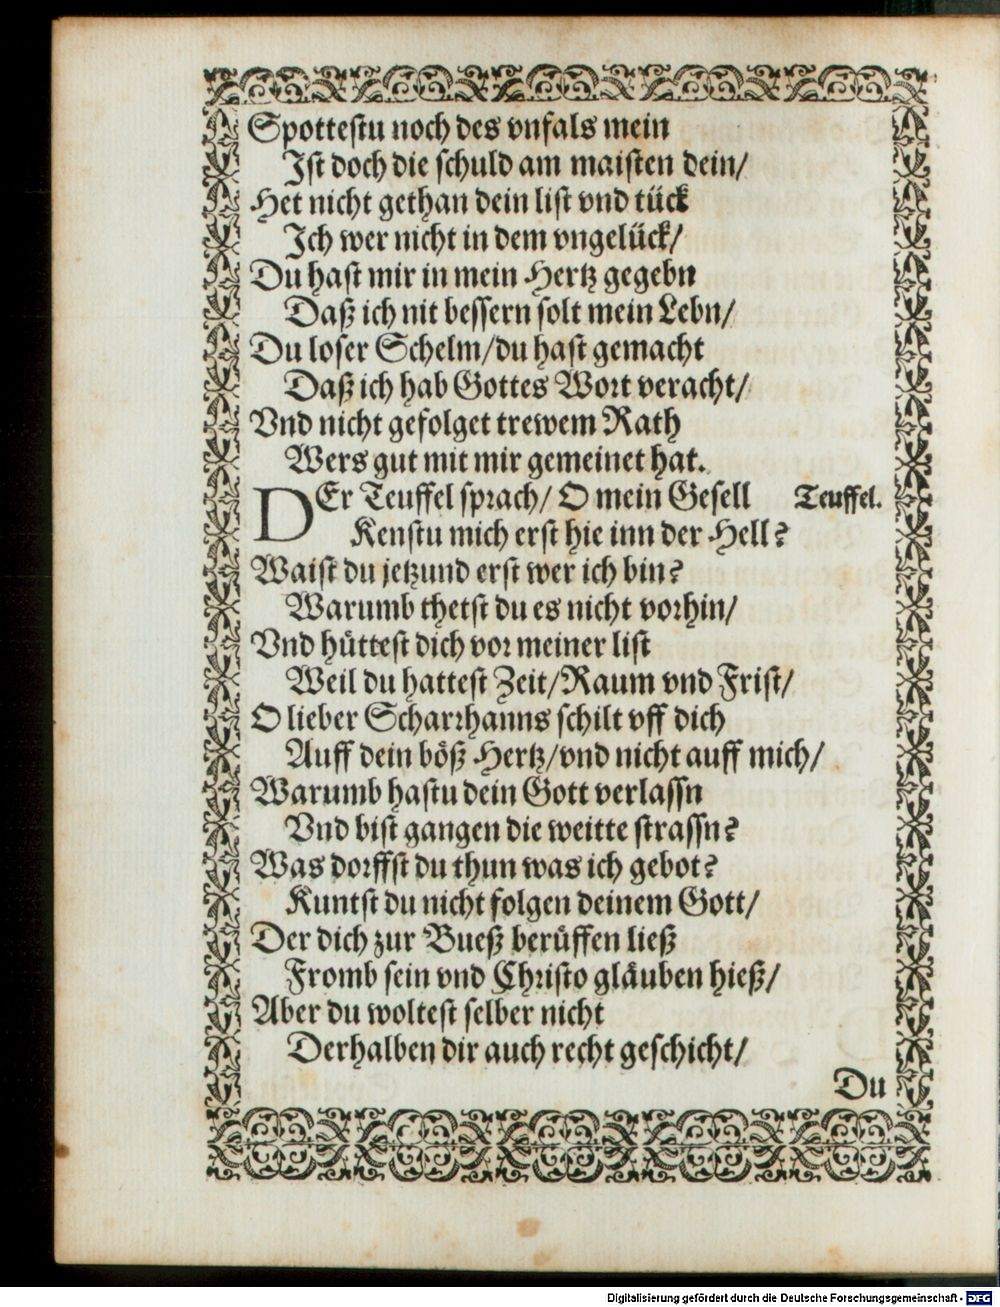 Spottestu noch des vnfals mein
Ist doch die schuld am maisten dein/
Het nicht gethan dein list vnd tück
Ich wer nicht in dem vngelück/
Du hast mir in mein Hertz gegebn
Daß ich nit bessern solt mein Lebn/
Du loser Schelm/du hast gemacht
Daß ich hab Gottes Wort veracht/
Vnd nicht gefolget trewem Rath
Wers gut mit mir gemeinet hat.
DEr Teuffel sprach/ O mein Gesell Teuffel.
Kenstu mich erst hie inn der Hell?
Waist du jetzund erst wer ich bin?
Warumb thetst du es nicht vorhin/
Vnd hüttest dich vor meiner list
Weil du hattest Zeit/Raum vnd Frist/
O lieber Scharrhanns schilt vff dich
Auff dein böß Hertz/vnd nicht auff mich/
Warumb hastu dein Gott verlassn
Vnd bist gangen die weitte strassn?
Was dorffst du thun was ich gebot?
Kuntst du nicht folgen deinem Gott/
Der dich zur Bueß berüffen ließ
Fromb sein vnd Christo gläuben hieß/
Aber du woltest selber nicht
Derhalben dir auch recht geschicht/
Du
Digitalisierung gefördert durch die Deutsche Forschungsgemeinschaft - DFG